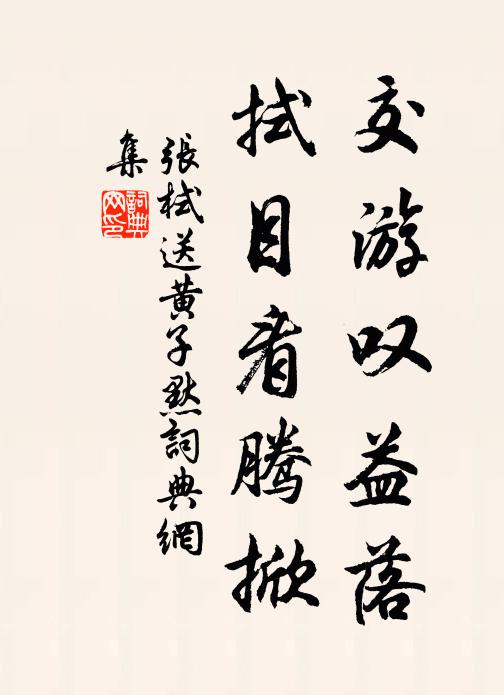 交游叹益落
拭目看腾掀
張栻送黄子默詞典網
集
詞典网印